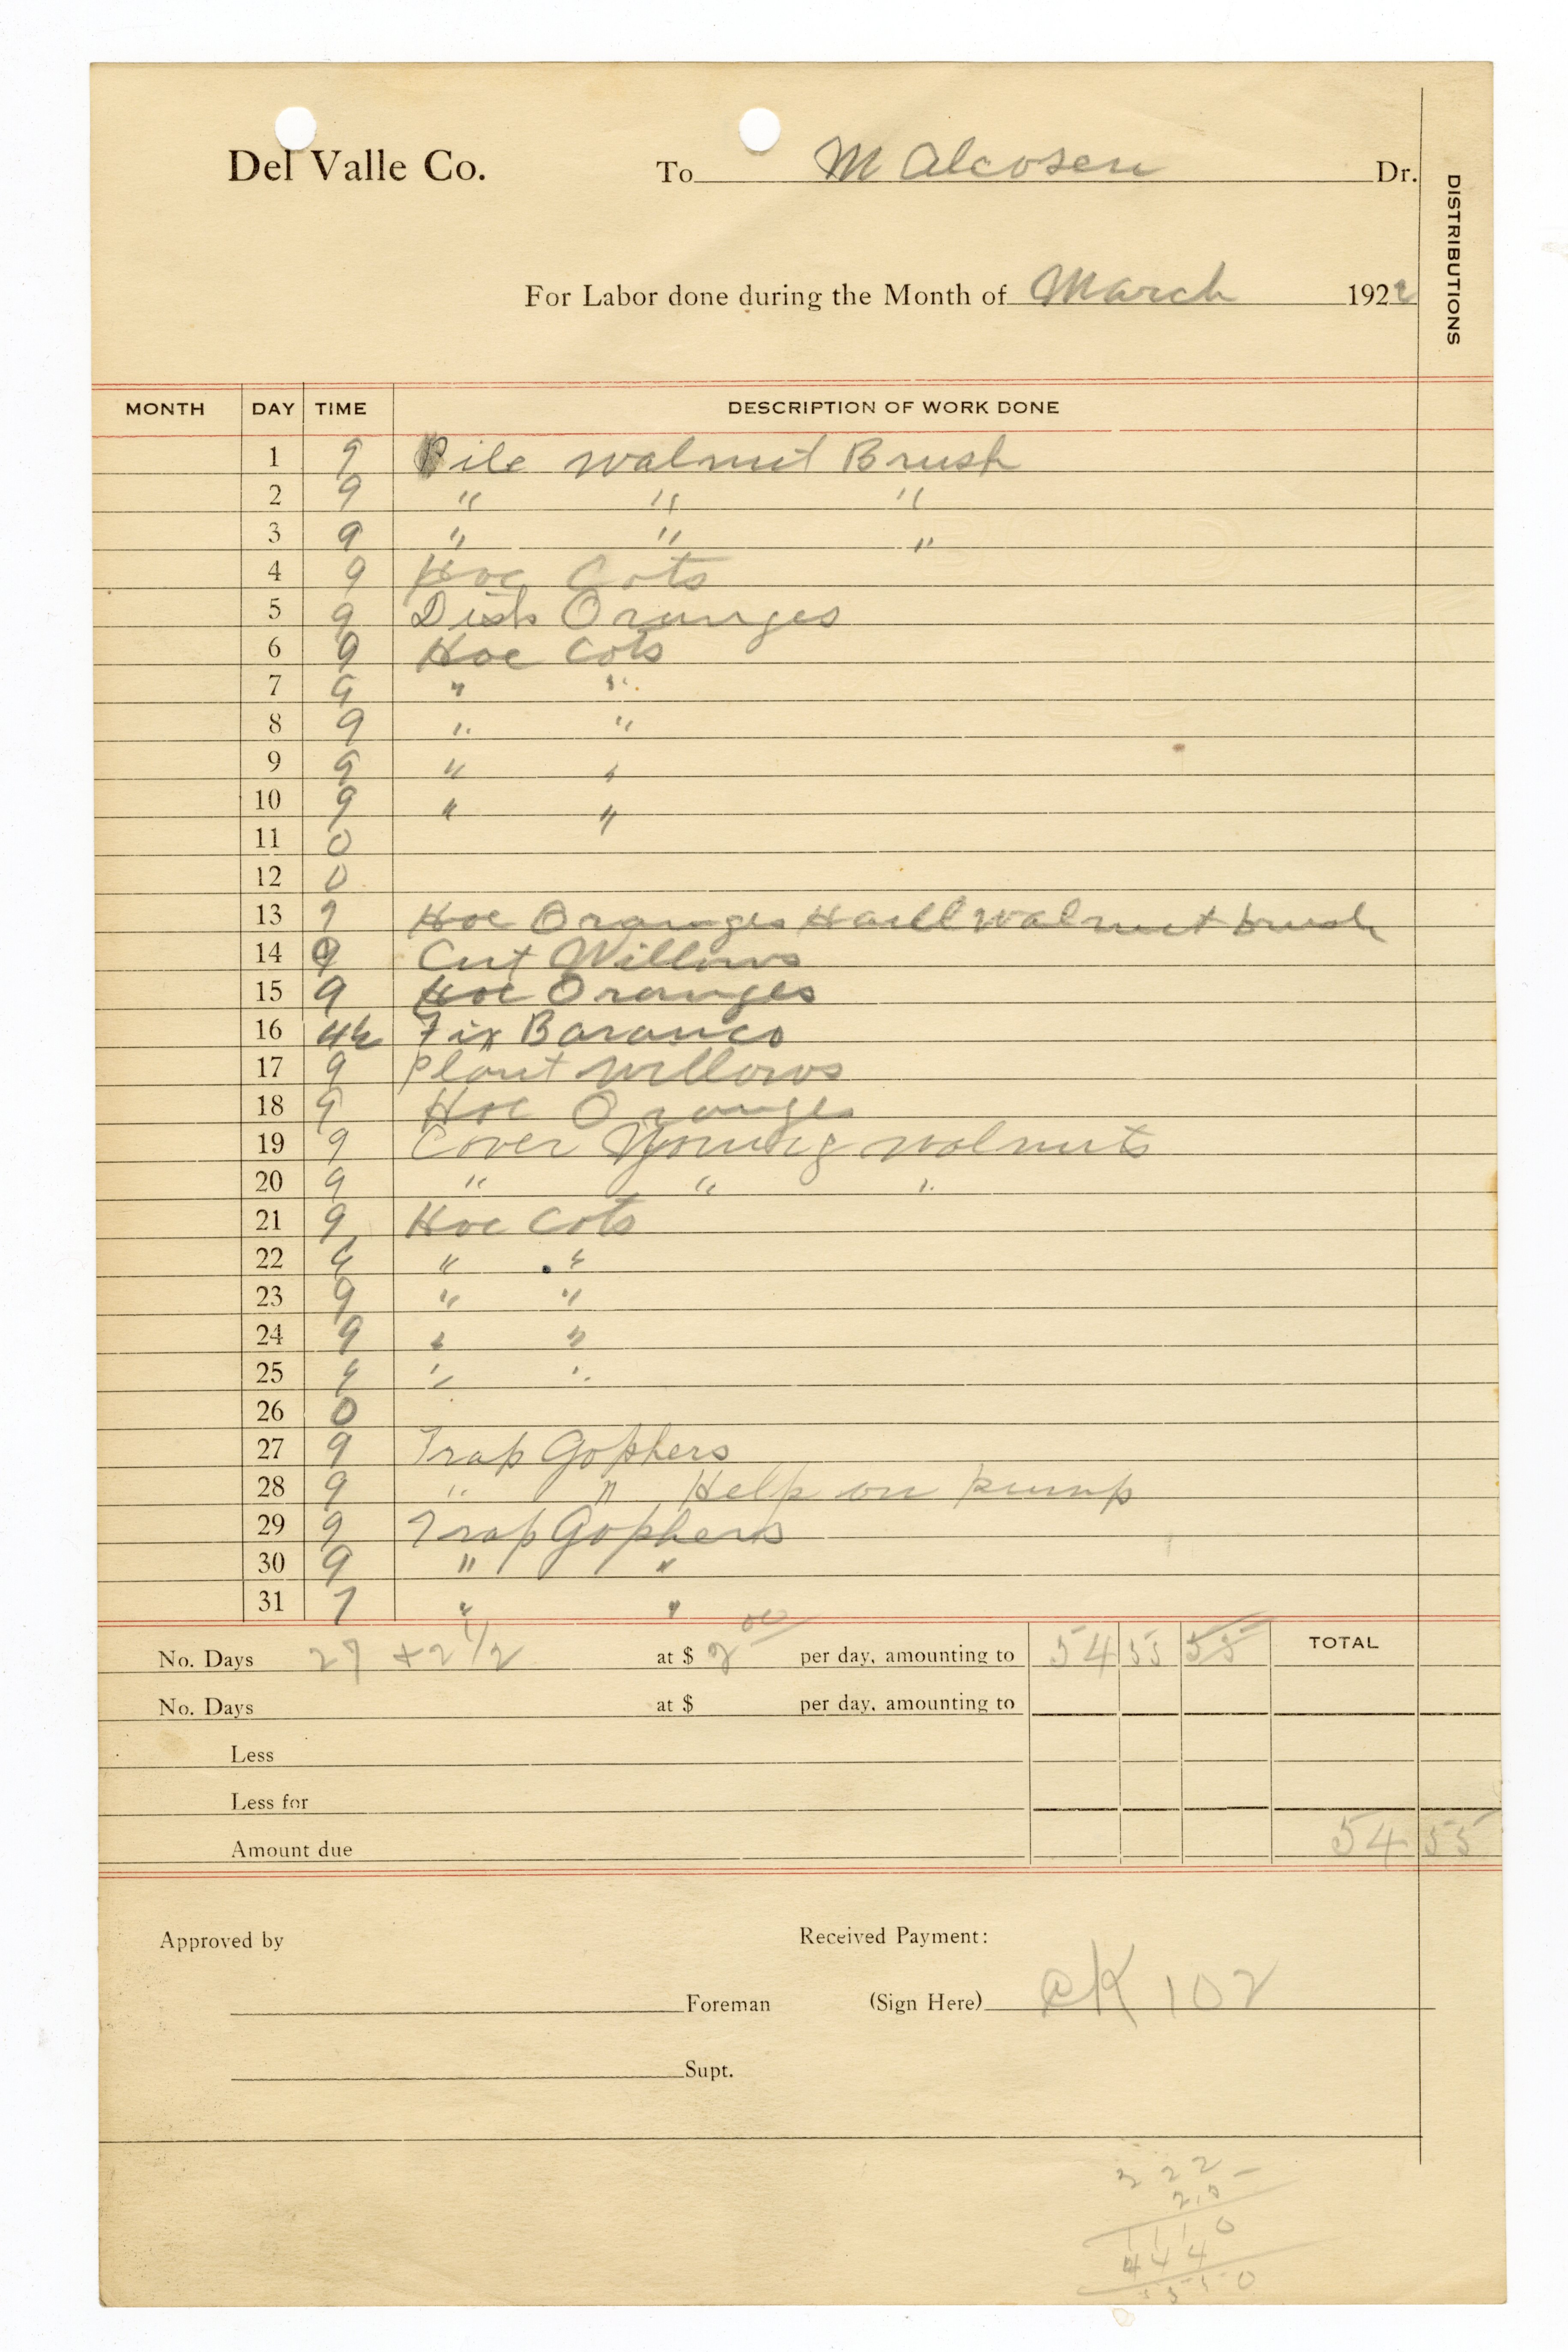 Del Valle Co. To M Alcoser Dr.
DISTRIBUTIONS
For Labor done during the Month of March 1922
MONTH DAY TIME DESCRIPTION OF WORK DONE
1 9 Pile Walnut Brush
2 9 " " "
3 9 " " "
4 9 Hoe Cots
5 9 Dish Oranges
6 9 Hoe Cots
7 9 " "
8 9 " "
9 9 " "
10 9 " "
11 0
12 0
13 9 Hoe Oranges Haull walnut brush
14 9 Cut Willows
15 9 Hoe Oranges
16 4½ Fix Baranco
17 9 Plant Willows
18 9 Hoe Oranges
19 9 Cover Young walnuts
20 9 " " "
21 9 Hoe Cots
22 9 " "
23 9 " "
24 9 " "
25 9 " "
26 0
27 9 Trap Gophers
28 9 " " Help on pump
29 9 Trap Gophers
30 9 " "
31 7 " "
No. Days 27 + 2 1/2 at $ 2 00 per day, amounting to 54 55 55 TOTAL
No. Days at $ per day, amounting to
Less
Less for
Amount due 54 55
Approved by Received Payment:
Foreman (Sign Here) CK 102
Supt.
222
2.5
1110
444
5550